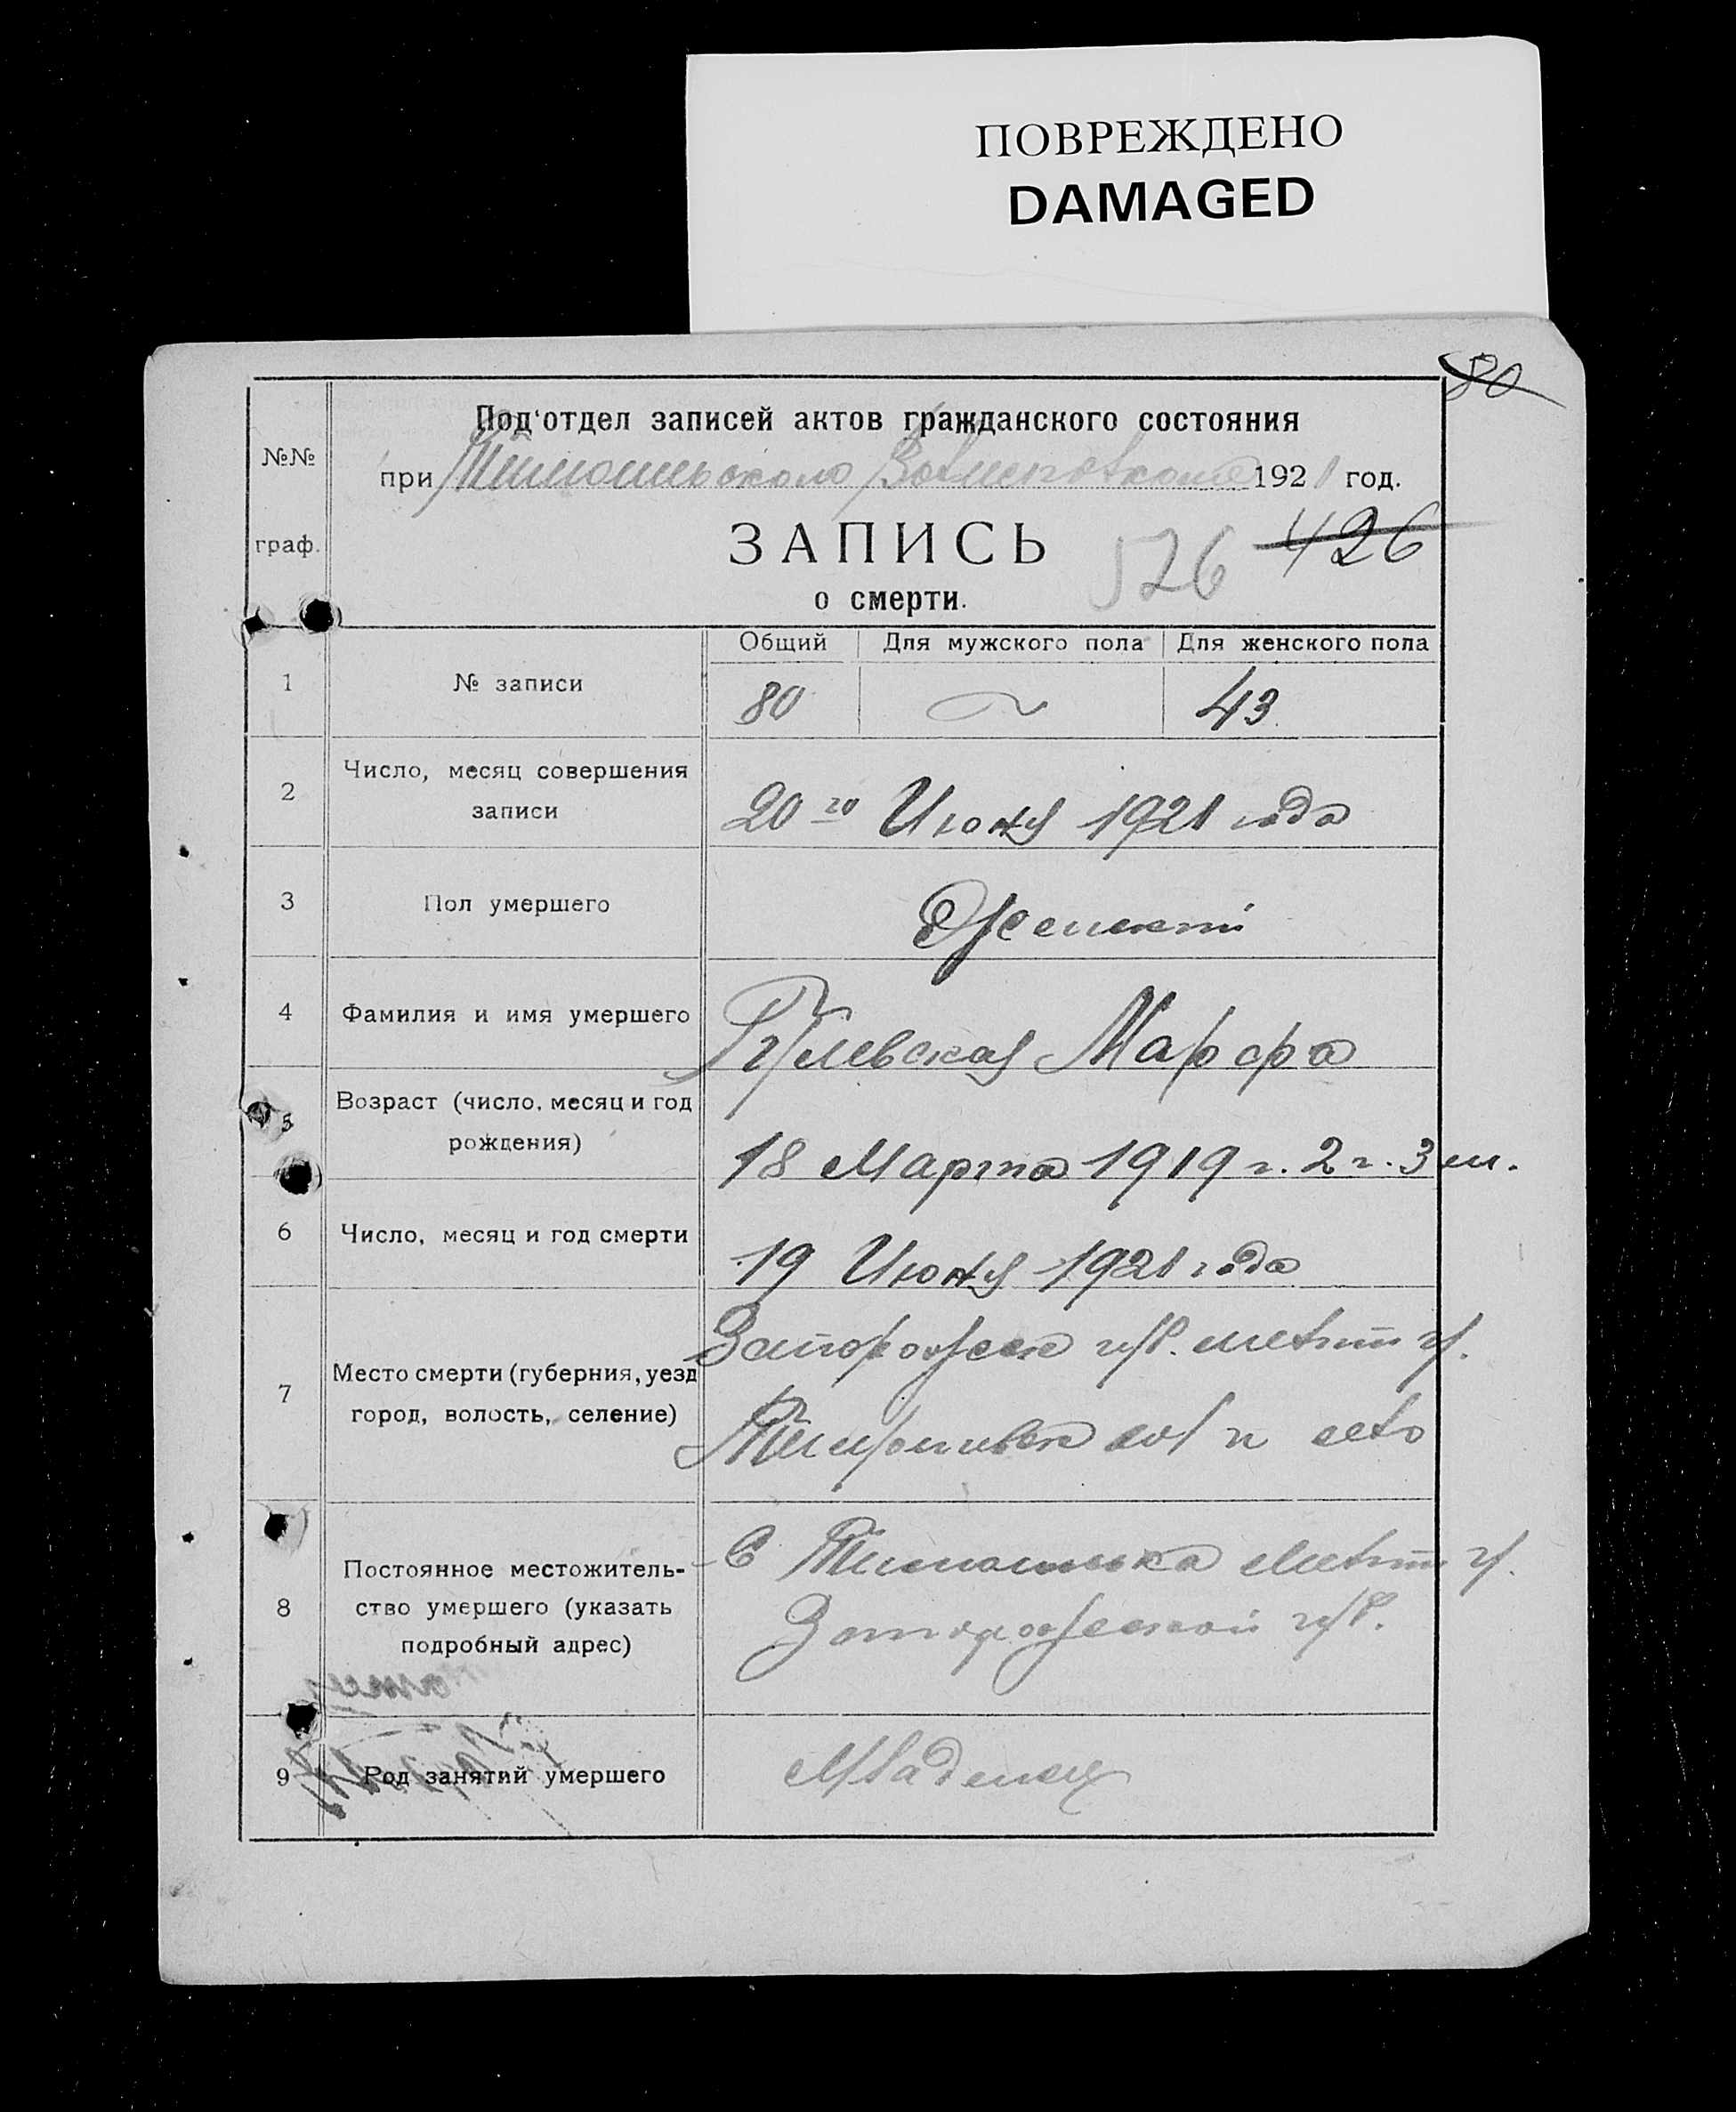 ПОВРЕЖДЕНО
DAMAGED
80
Под'отдел записей актов гражданского состояния
№№
при Тимошьского 1921 год.
граф.
ЗАПИСЬ
526 426
о смерти.
Общий Для мужского пола Для женского пола
1 № записи 80 43
2 Число, месяц совершения
записи
20го Июня 1921 года
3 Пол умершего Женский
4 Фамилия и имя умершего
Гулевская Марфа
5 Возраст (число, месяц и год
рождения)
18 Марта 1919 г. 2 г. 3 м.
6 Число, месяц и год смерти
19 Июня 1921 года
7 Место смерти (губерния, уезд
город, волость, селение)
Запорожск губ. мелит у.
8 Постоянное местожитель-
ство умершего (указать
подробный адрес)
С Тимошька Мелит у.
Запорожской губ.
9 Род занятий умершего Младенец